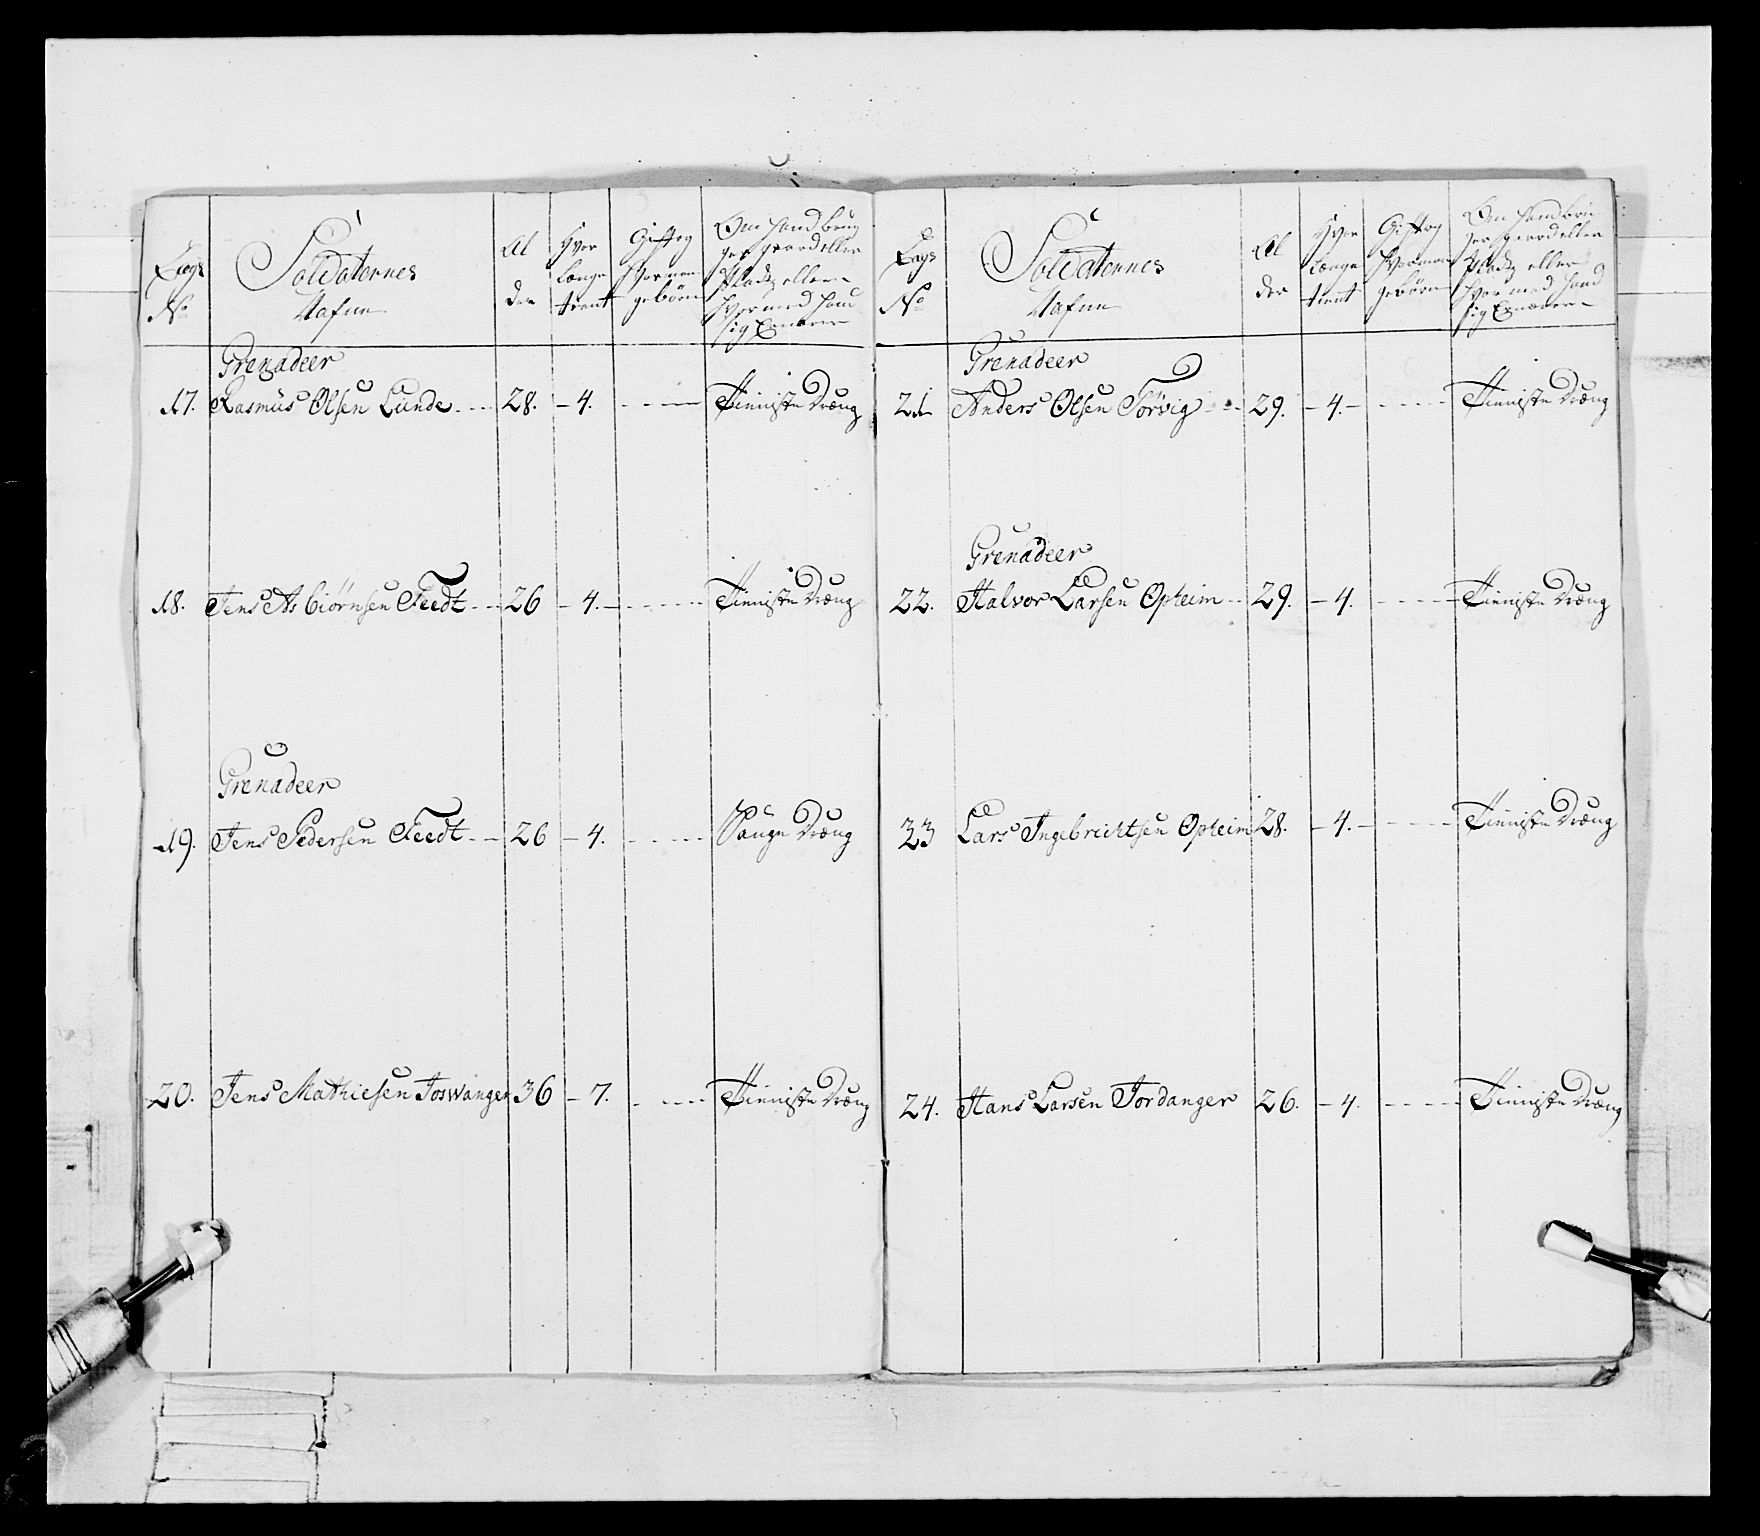 Lægs
No
Soldaternes
Nafne
Al
der
Hvor
længe
tient
Gift og
hvor man
ge börn
Om hand brug
ger gaard eller
Pladtz eller
hvor med hand
sig Ernærer
Grenadeer
17. Rasmus Olsen Lunde 28. 4. Tieniste Dræng
18. Jens Asbiörnsen Feedt 26 4. Tieniste Dræng
Grenadeer
19. Jens Pedersen Feedt 26 4. Dræng
20. Jens Mathiesen Joswanger 36 7. Tieniste Dræng
Lægs
No
Soldaternes
Nafne
Al
der
Hvor
længe
tient
Gift og
hvor man
ge börn
Om hand bru
ger gaard eller
Pladtz eller
hvor med hand
sig Ernærer
Grenadeer
21 Anders Olsen Törvig 29. 4. Tieniste Dræng
Grenadeer
22. Halvor Larsen Opheim 29. 4. Tieniste Dræng
23 Lars Ingebrichtsen Opheim 28. 4. Tieniste Dræng
24. Hans Larsen Jordanger 26. 4. Tieniste Dræng